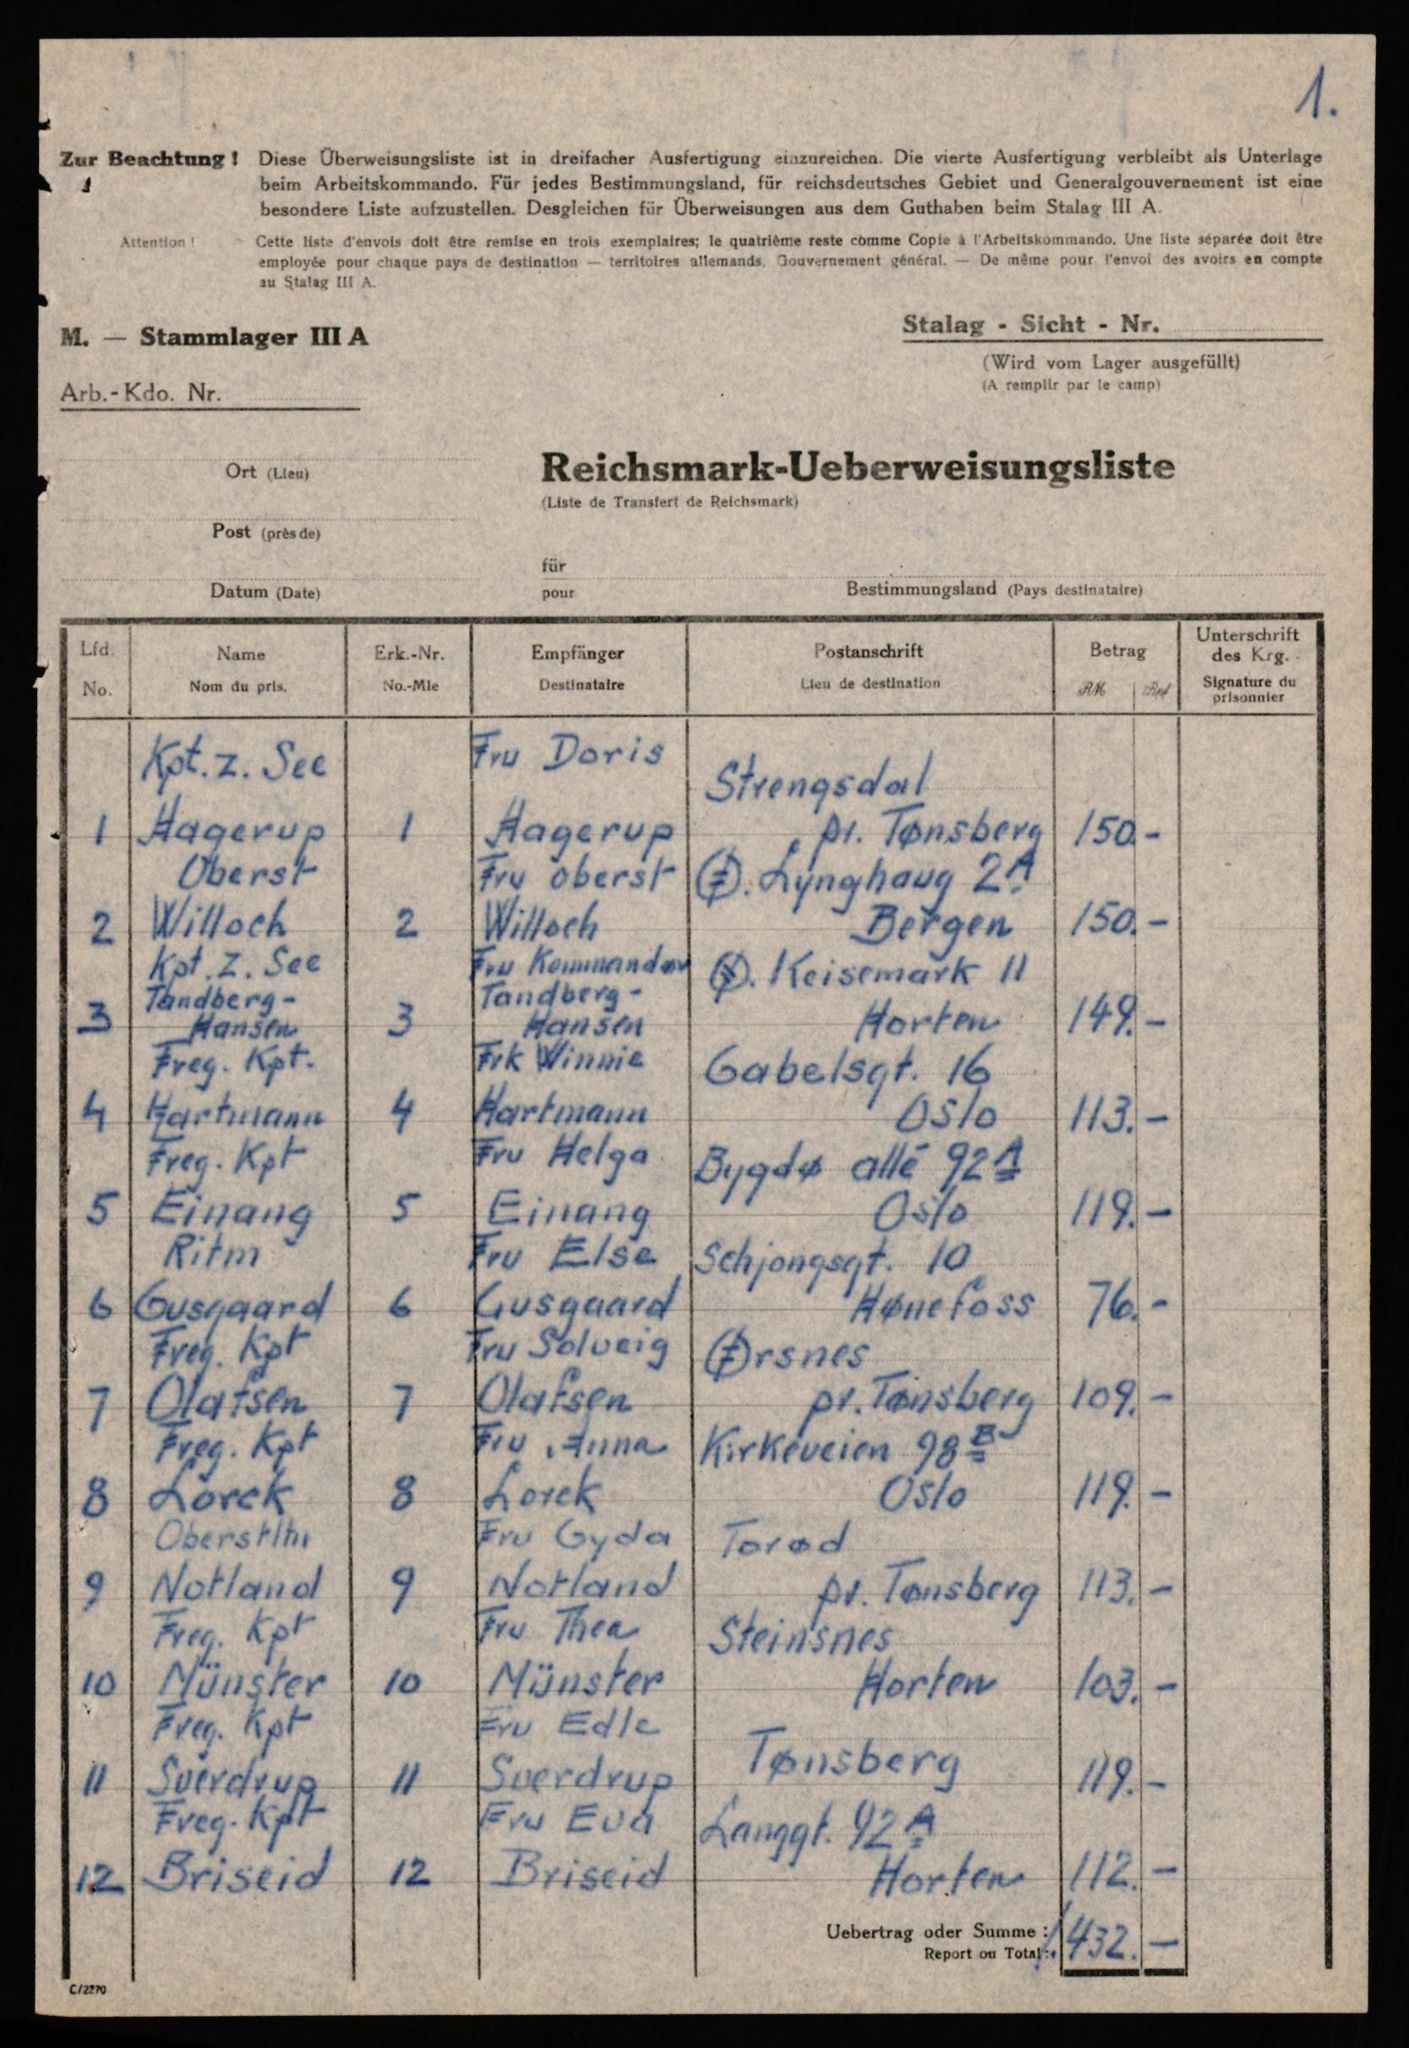 1.
Zur Beachtung! Diese Überweisungsliste ist in dreifacher Ausfertigung einzureichen. Die vierte Ausfertigung verbleibt als Unterlage
beim Arbeitskommando. Für jedes Bestimmungsland, für reichsdeutsches Gebiet und Generalgouvernement ist eine
besondere Liste aufzustellen. Desgleichen für Überweisungen aus dem Guthaben beim Stalag III A.
Attention! Cette liste d'envois doit être remise en trois exemplaires; le quatrième reste comme Copie à l'Arbeitskommando. Une liste séparée doit être
employée pour chaque pays de destination — territoires allemands. Gouvernement général. — De même pour l'envoi des avoirs en compte
au Stalag III A.
M. — Stammlager III A
Stalag - Sicht - Nr.
(Wird vom Lager ausgefüllt)
(A remplir par le camp)
Arb.-Kdo. Nr.
Ort (Lieu)
Reichsmark-Ueberweisungsliste
(Liste de Transfert de Reichsmark)
Post (près de)
für
Datum (Date)
pour
Bestimmungsland (Pays destinataire)
Lfd. Name Erk.-Nr. Empfänger Postanschrift Betrag Unterschrift des Krg.
No. Nom du pris. No.-Mle Destinataire Lieu de destination RM Rpf Signature du prisonnier
Kpt. z. See Fru Doris Strengsdal
1 Hagerup 1 Hagerup pr. Tønsberg 150.-
Oberst Fru oberst Ø. Lynghaug 2A
2 Willoch 2 Willoch Bergen 150.-
Kpt. z. See Fru Kommandør Ø. Keisemark 11
Tandberg- Tandberg-
3 Hansen 3 Hansen Horten 149.-
Freg. Kpt. Frk Winnie Gabelsgt. 16
4 Hartmann 4 Hartmann Oslo 113.-
Freg. Kpt Fru Helga Bygdø allé 92A
5 Einang 5 Einang Oslo 119.-
Ritm Fru Else Schjongsgt. 10
6 Gusgaard 6 Gusgaard Hønefoss 76.-
Freg. Kpt Fru Solveig Ørsnes
7 Olafsen 7 Olafsen pr. Tønsberg 109.-
Freg. Kpt Fru Anna Kirkeveien 98B
8 Lorck 8 Lorck Oslo 119.-
Oberstltn Fru Gyda Torød
9 Notland 9 Notland pr. Tønsberg 113.-
Freg. Kpt Fru Thea Steinsnes
10 Münster 10 Münster Horten 103.-
Freg. Kpt Fru Edle Tønsberg
11 Sverdrup 11 Sverdrup 119.-
Freg. Kpt Fru Eva Langgt. 92A
12 Briseid 12 Briseid Horten 112.-
Uebertrag oder Summe: 1432.-
Report ou Total:
C/2270